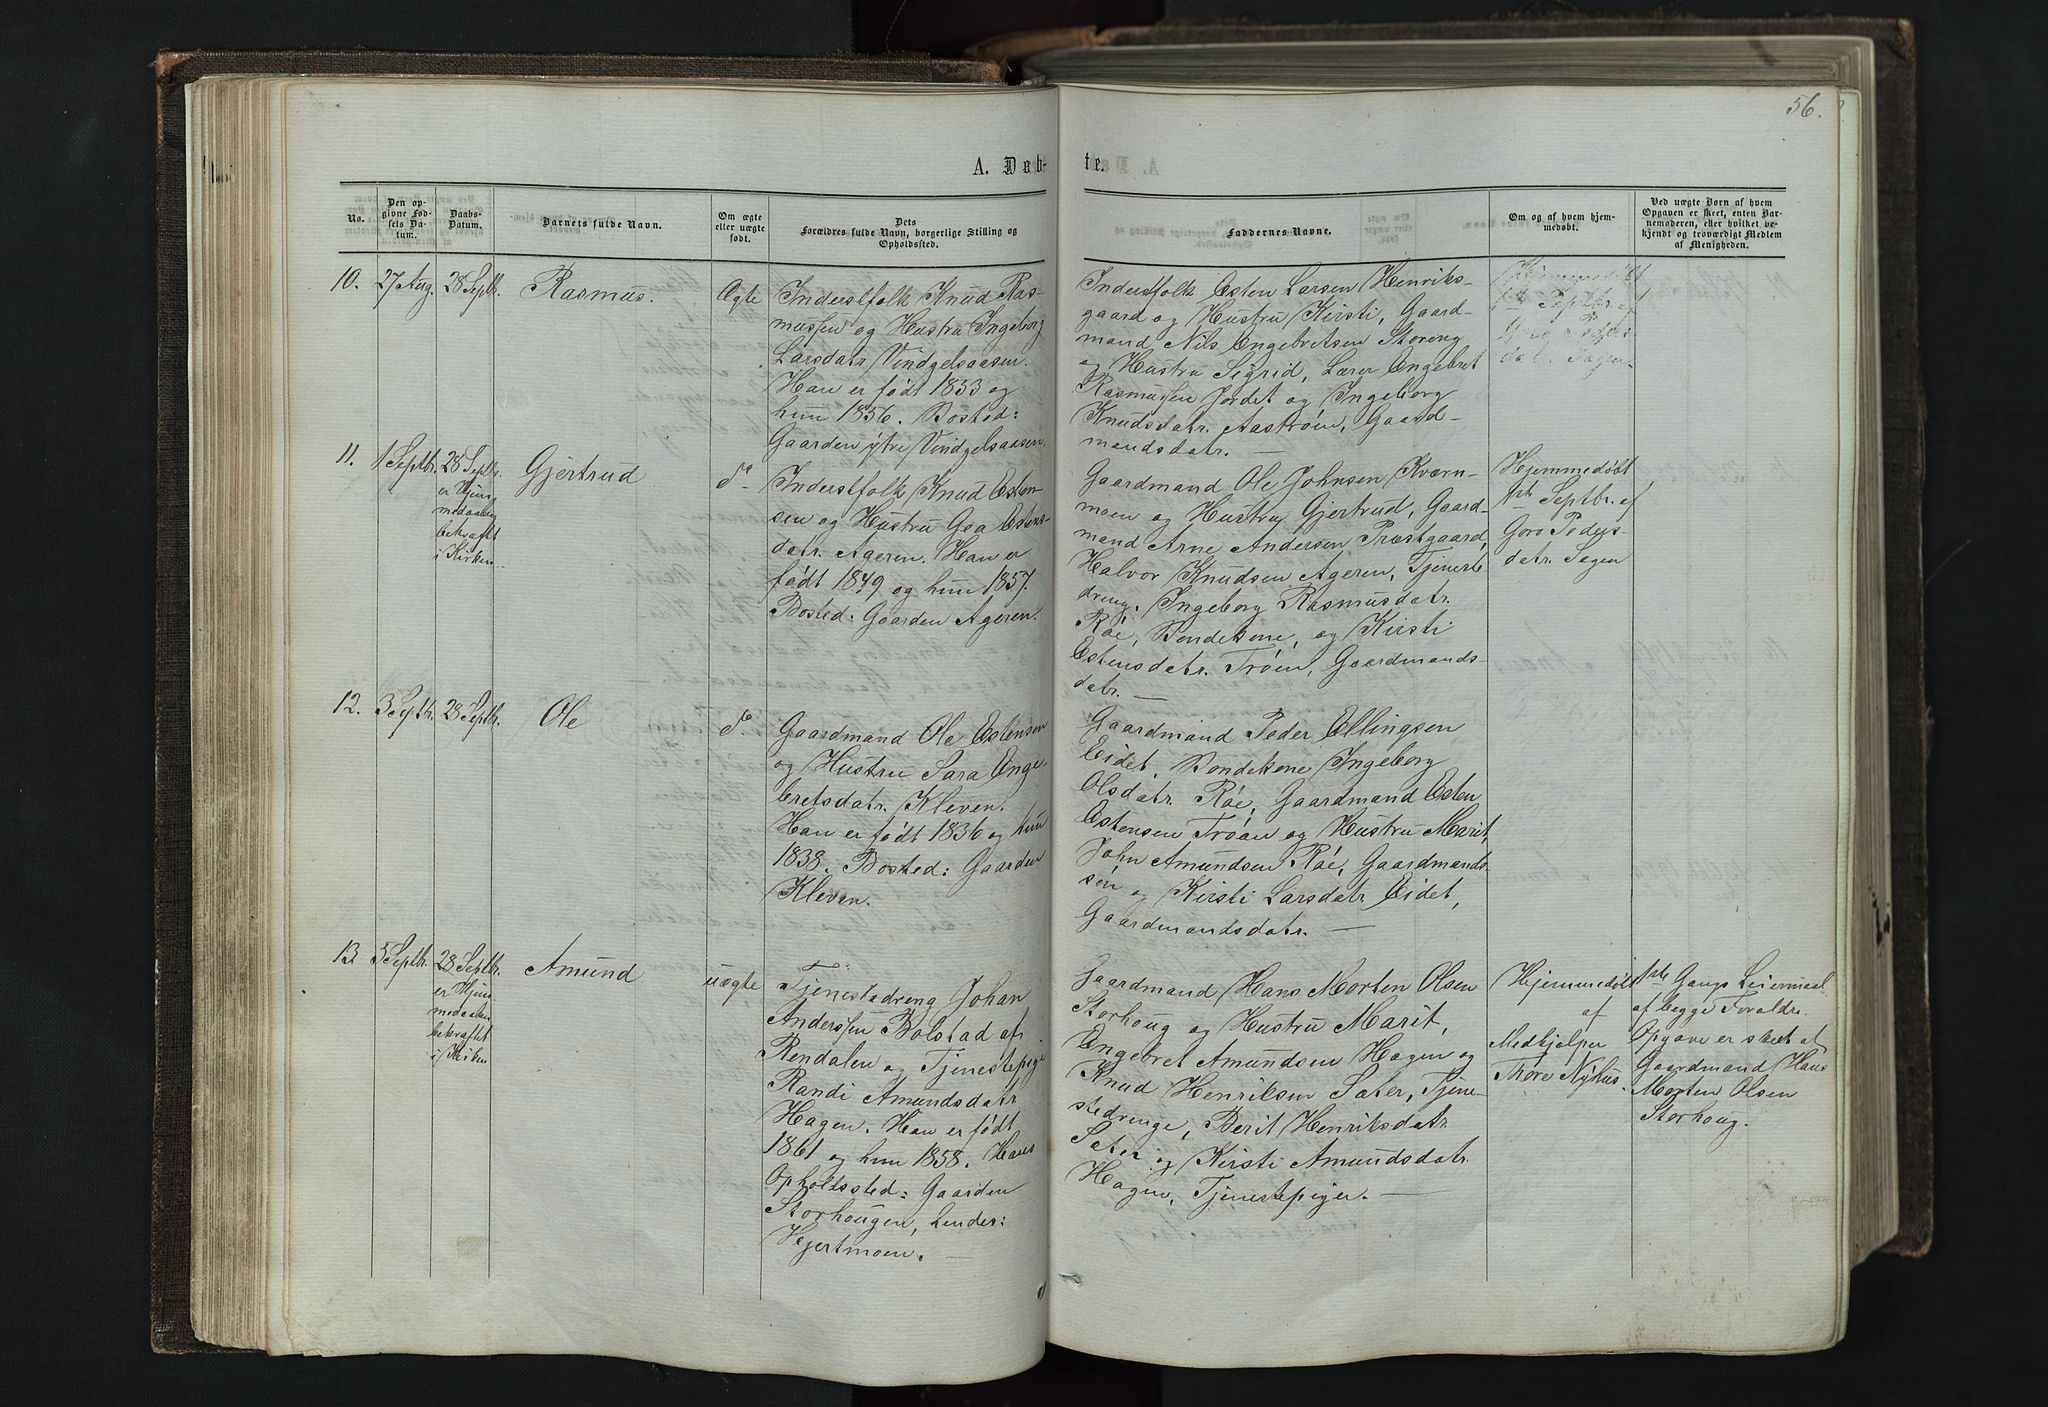 56.
A. Døb-
te.
No.
Den op-
givne Fød-
sels Da-
tum.
Daabs-
Datum.
Barnets fulde Navn.
Om ægte
eller uægte
født.
Dets
Forældres fulde Navn, borgerlige Stilling og
Opholdssted.
Faddernes Navne.
Om og af hvem hjem-
medøbt.
Ved uægte Børn af hvem
Opgaven er skeet, enten Bar-
nemoderen, eller hvilket ve-
kjendt og troværdigt Medlem
af Menigheden.
10.
27 Aug.
28 Septb.
Rasmus.
Ægte
Inderstfolk Knud Ras-
mussen og Hustru Ingeborg
Larsdatr Vindgelsaasen.
Han er født 1853 og
hun 1856. Bosted:
Gaarden ytre Vindgelsaasen.
Inderstfolk Esten Larsen Henriks-
gaard og Hustru Kirsti, Gaard-
mand Nils Engebretsen Storeng
og Hustru Sigrid, Lærer Engebret
Rasmussen Jordet og Ingeborg
Knudsdatr. Aastrøen, Gaard-
mandsdatr. —
Hjemmedøbt
1ste Septbr. af
Goro Peders-
datr. Sagen.
11.
1 Septbr.
28 Septbr.
er Hjem-
medaaben
bekræft
i Kirken.
Gjertrud
do
Inderstfolk Knud Esten-
sen og Hustru Goa Estens-
datr. Ageren. Han er
født 1849 og hun 1857.
Bosted: Gaarden Ageren.
Gaardmand Ole Johnsen Kværn-
moen og Hustru Gjertrud, Gaard-
mand Arne Andersen Præstgaard,
Halvor Knudsen Ageren, Tjeneste
dreng, Ingeborg Rasmusdatr.
Røe, Bondekone, og Kirsti
Estensdatr. Trøen, Gaardmands-
datr. —
Hjemmedøbt
1ste Septbr. af
Goro Peders-
datr. Sagen
12.
3 Septbr.
28 Septbr.
Ole
do
Gaardmand Ole Estensen
og Hustru Sara Enge
bretsdatr. Kleven.
Han er født 1836 og hun
1838. Bosted: Gaarden
Kleven.
Gaardmand Peder Ellingsen
Eidet, Bondekone Ingeborg
Olsdatr. Røe, Gaardmand Esten
Estensen Trøan og Hustru Marit,
John Amundsen Røe, Gaardmands-
søn og Kirsti Larsdatr Eidet,
Gaardmandsdatr. —
13
5 Septbr.
28 Septbr.
er Hjem
medaaben
bekræftet
i Kirken
Amund
uægte
Tjenestedreng Johan
Anderssen Bolstad af
Rendalen og Tjenestepige
Randi Amundsdatr
Hagen. Han er født
1861 og hun 1858. Hans
Opholdssted: Gaarden
Storhougen, hendes:
Hjertmoen. —
Gaardmand Hans Morten Olsen
Storhoug og Hustru Marit,
Engebret Amundsen Hagen og
Knud Henriksen Sæter, Tjene-
stedrenge, Berit Henriksdatr.
Sæter og Kirsti Amundsdatr.
Hagen, Tjenestepiger. —
Hjemmedøbt
af
Medhjælper
Thore Nyhus.
1ste Gangs Leiermaal
af begge Forældre.
Opgave er skeet af
Gaardmand Hans
Morten Olsen
Storhoug.